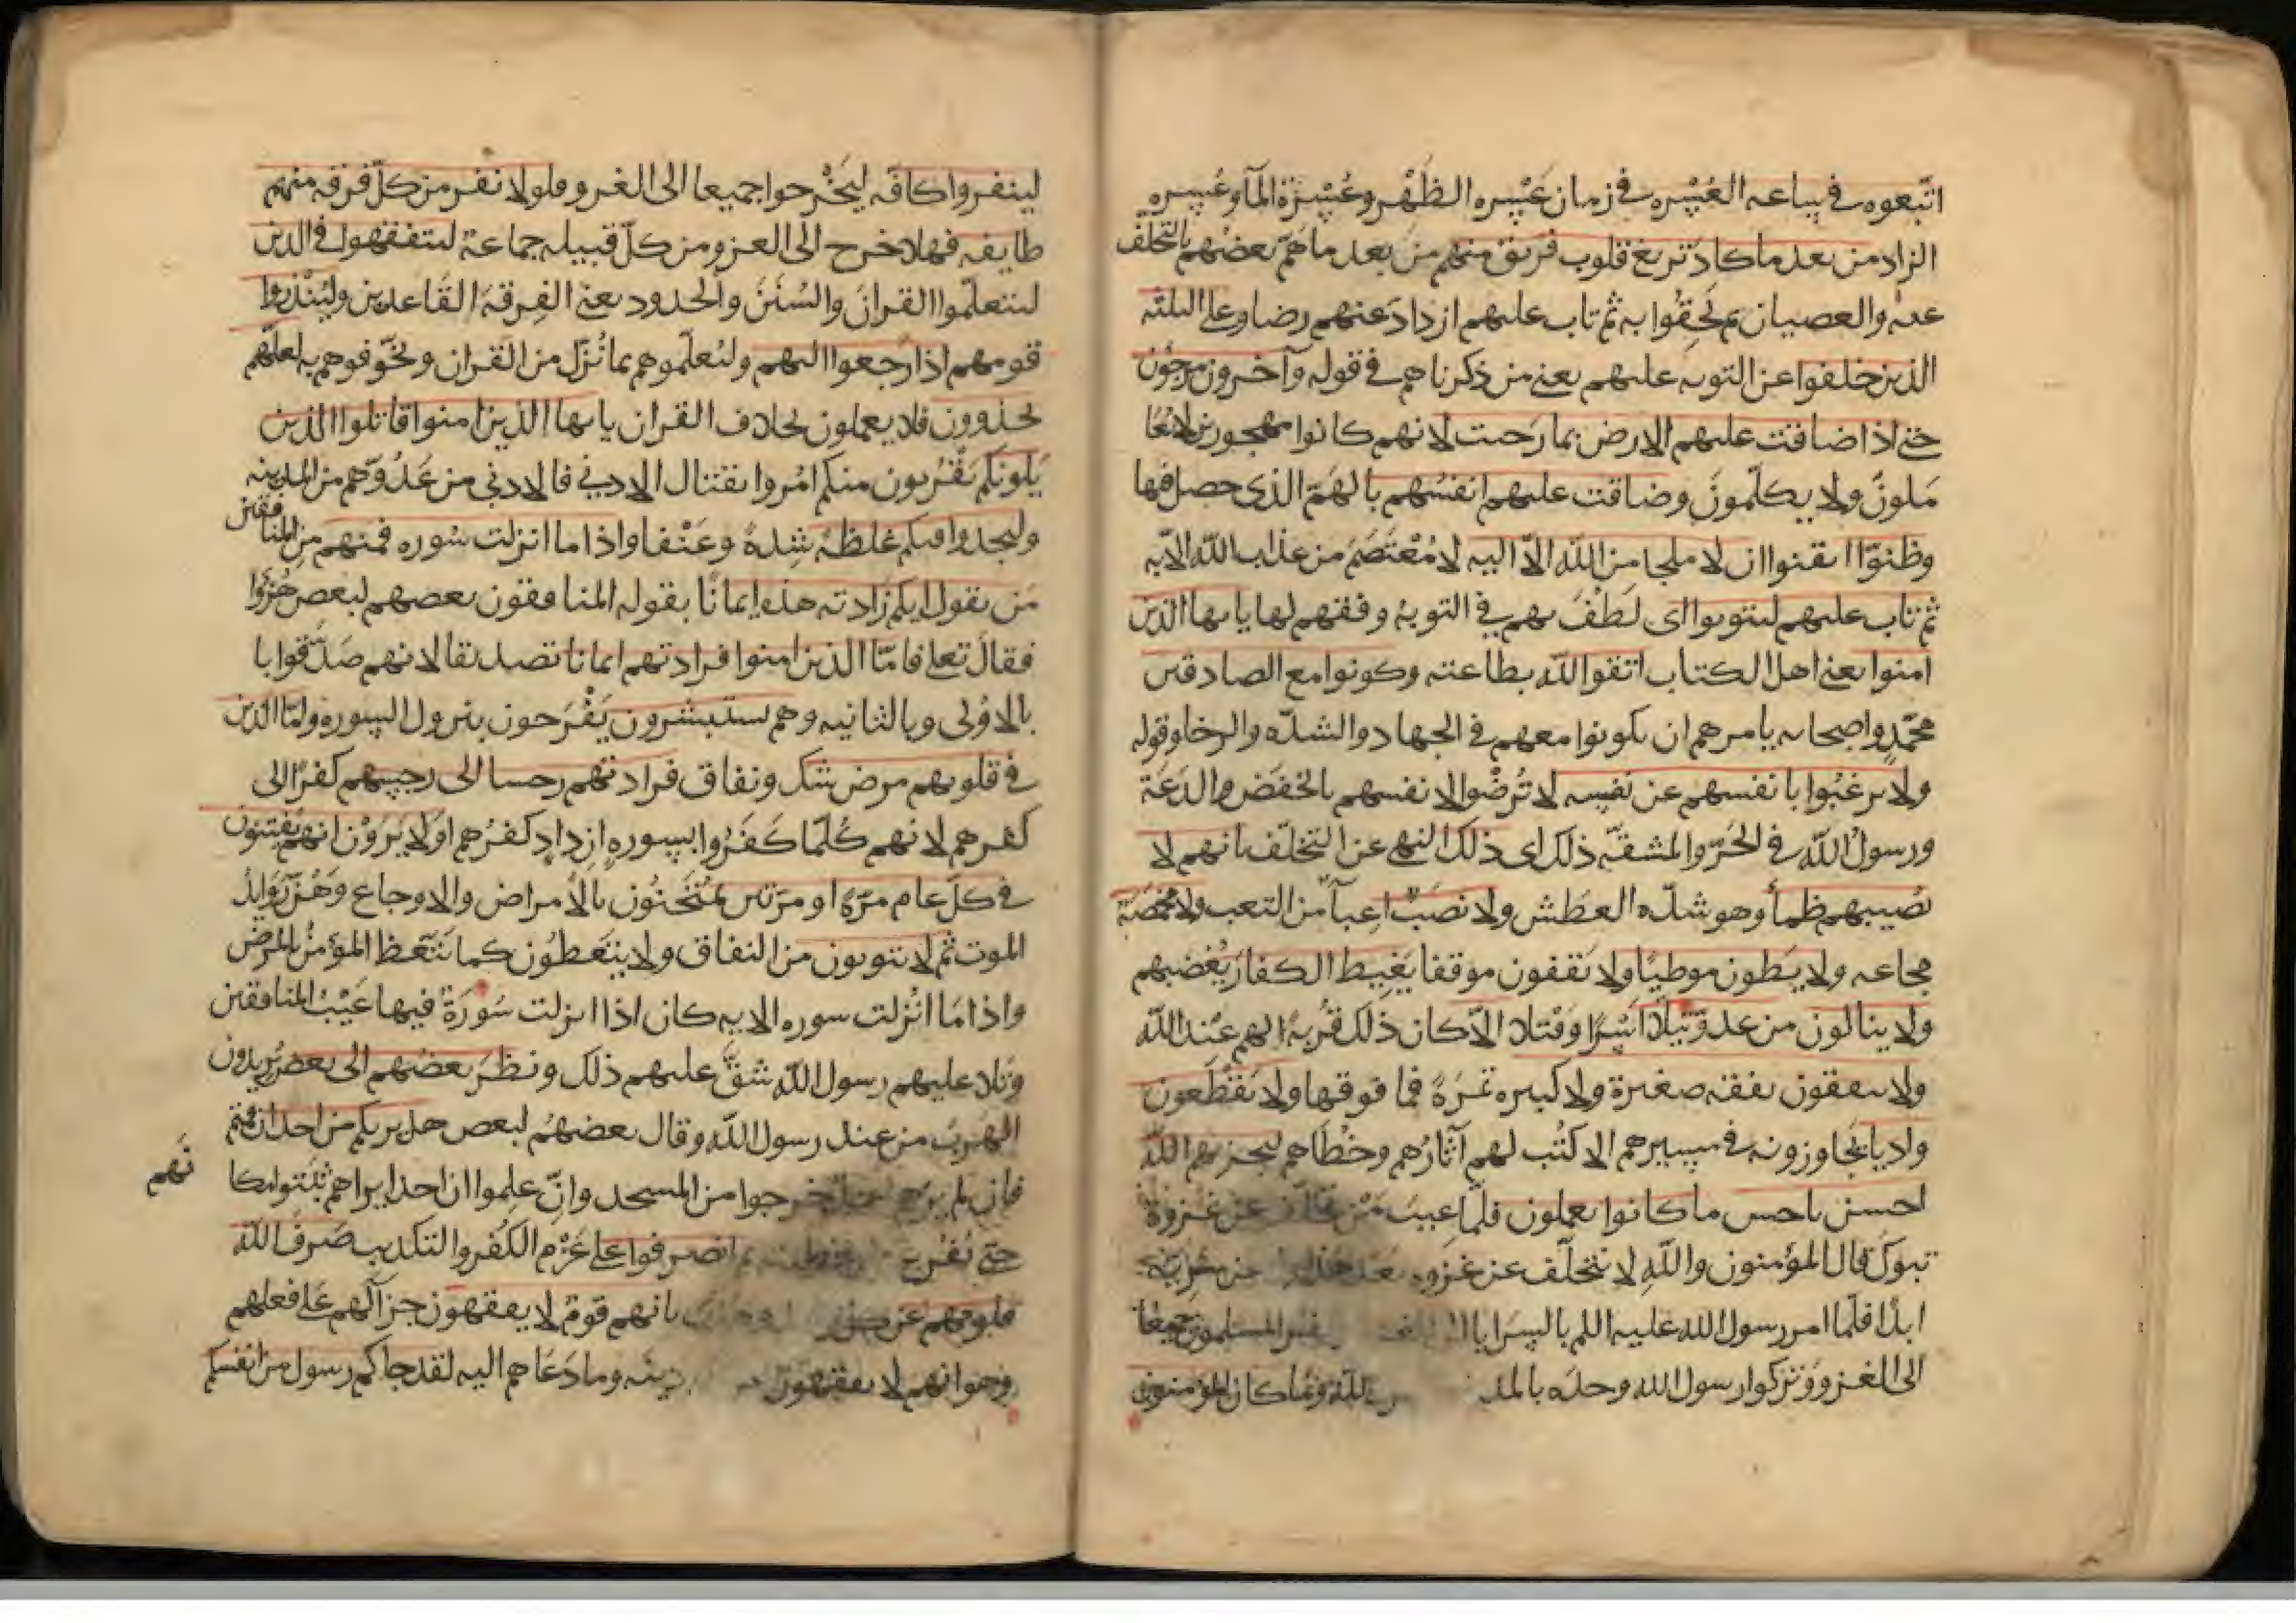 اتبعوه في ساعه العسره في زمان عسره الظهر وعسرة الماء وعسره
الزاد من بعد ما كاد تزيغ قلوب فريق منهم من بعد ما هم بعضهم بالتخلف
عنه والعصيان ثم لحقوا به ثم تاب عليهم ازداد عنهم رضا وعلى الثلثه
الذين خلفوا عن التوبه عليهم يعني من ذكرناهم في قوله وآخرون مرجون
حتى اذا ضاقت عليهم الارض بما رحبت لانهم كانوا مهجورين لا يعا
ملون ولا يكلمون وضاقت عليهم انفسهم بالهم الذي حصل فيها
وظنوا ايقنوا ان لا ملجا من الله الا اليه لا معتصم من عذاب الله الا به
ثم تاب عليهم ليتوبوا اى لطف بهم في التوبه ووفقهم لها يا يها الذين
امنوا يعني اهل الكتاب اتقوا الله بطاعته وكونوا مع الصادقين
محمد واصحابه يامرهم ان يكونوا معهم في الجهاد والشده والرخا وقوله
ولا يرغبوا بانفسهم عن نفسه لا ترضوا لانفسهم بالخفض والدعة
ورسول الله في الحر والمشقه ذلك اى ذلك النهى عن التخلف بانهم لا
نصيبهم ظمأ وهو شده العطش ولا نصب اعيآ من التعب ولا مخمصة
مجاعه ولا يطون موطيا ولا يقفون موقفا يغيظ الكفار يغضبهم
ولا ينالون من عدو نيلا اسرا وقتلا الا كان ذلك قربه لهم عند الله
ولا ينفقون نفقه صغيرة ولا كبيره تمرة فما فوقها ولا يقطعون
واديا يجاوزونه في مسيرهم الا كتب لهم آثارهم وخطاهم ليجزيهم الله
احسن باحسن ما كانوا يعملون فلما عيب من تخلف عن غزوة
تبوك قال المؤمنون والله لا نتخلف عن غزوه بعد هذا عن سريه
ابدا فلما امر رسول الله عليه اللم بالسرايا نفر المسلمون جميعا
الى الغزو وتركوا رسول الله وحده بالمد الله وما كان المؤمنون
لينفروا كافه ليخرجوا جميعا الى الغزو فلولا نفر من كل فرقه منهم
طايفه فهلا خرج الى الغزو من كل قبيله جماعة ليتفقهوا في الدين
ليتعلموا القران والسنن والحدود يعني الفرقة القاعدين ولينذروا
قومهم اذا رجعوا اليهم وليعلموهم بما نزل من القران ويخوفوهم به لعلهم
يحذرون فلا يعملون بخلاف القران يا يها الذين امنوا قاتلوا الذين
يلونكم يقربون منكم امروا بقتال الادني فالادني من عدوهم من المدينه
وليجدوا فيكم غلظة شدة وعنفا واذا ما انزلت سوره فمنهم من المنافقين
من يقول ايكم زادته هذه ايمانا يقوله المنافقون بعضهم لبعض هزؤا
فقال تعلى فاما الذين امنوا فزادتهم ايمانا تصديقا لانهم صدقوا با
بالاولى وبالثانيه وهم يستبشرون يفرحون بنزول السوره واما الذين
في قلوبهم مرض شك ونفاق فزادتهم رجسا الى رجسهم كفرا الى
كفرهم لانهم كلما كفروا بسورة ازداد كفرهم اولا يرون انهم يفتنون
في كل عام مرة او مرتين يمتحنون بالامراض والاوجاع وهن روائد
الموت ثم لا يتوبون من النفاق ولا يتعظون كما يتعظ المؤمن بالمرض
واذا ما انزلت سوره الايه كان اذا انزلت سورة فيها عيب المنافقين
وتلا عليهم رسول الله شق عليهم ذلك ونظر بعضهم الى بعض يريدون
الهرب من عند رسول الله وقال بعضهم لبعض هل يريكم من احد ان قمتم
فان لم يرهم احد خرجوا من المسجد وان علموا ان احدا يراهم ثبتوا مكا
نهم
حتى يفرغ من خطبته ثم انصرفوا على عزم الكفر والتكذيب صرف الله
قلوبهم عن كل بانهم قوم لا يفقهون جزآ لهم على فعلهم
وهو انهم لا يفقهون دينه وما دعاهم اليه لقد جاكم رسول من انفسكم